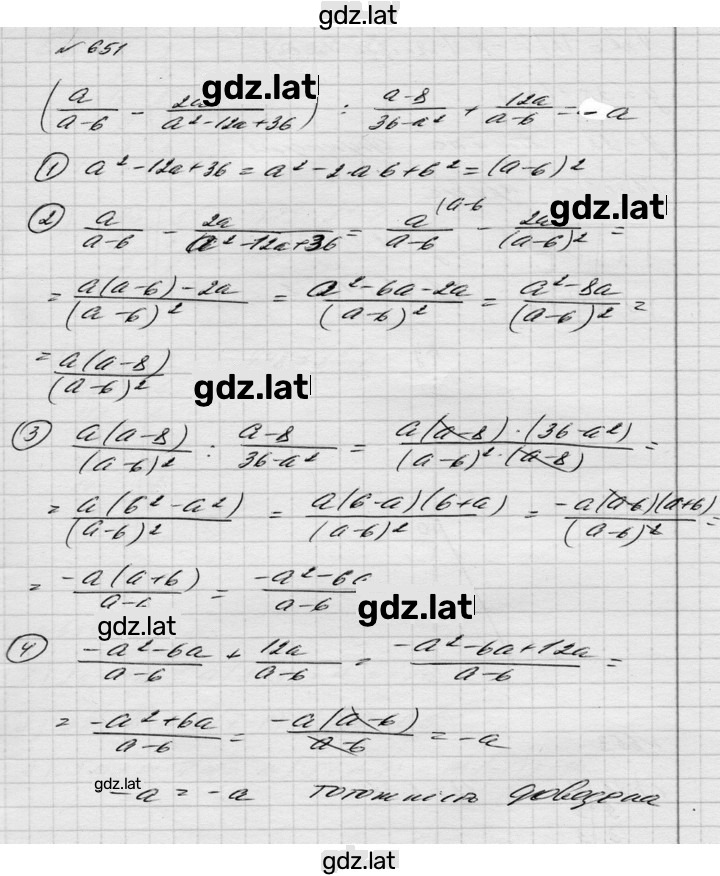 gdz.lat
№ 651
(a/(a-6) - 2a/(a²-12a+36)) : (a-8)/(36-a²) + 12a/(a-6) = -a
gdz.lat
1) a²-12a+36 = a²-2·a·6+6² = (a-6)²
2) a/(a-6) - 2a/(a²-12a+36) = a/(a-6) (a-6 - 2a/(a-6)² =
gdz.lat
= (a(a-6)-2a)/(a-6)² = (a²-6a-2a)/(a-6)² = (a²-8a)/(a-6)² =
= a(a-8)/(a-6)²
gdz.lat
3) a(a-8)/(a-6)² : (a-8)/(36-a²) = (a(a-8)·(36-a²))/((a-6)²·(a-8)) =
= a(6²-a²)/(a-6)² = a(6-a)(6+a)/(a-6)² = -a(a-6)(a+6)/(a-6)² =
= -a(a+6)/(a-6) = (-a²-6a)/(a-6)
gdz.lat
gdz.lat
4) (-a²-6a)/(a-6) + 12a/(a-6) = (-a²-6a+12a)/(a-6) =
= (-a²+6a)/(a-6) = -a(a-6)/(a-6) = -a
gdz.lat
-a = -a тотожність доведена
gdz.lat